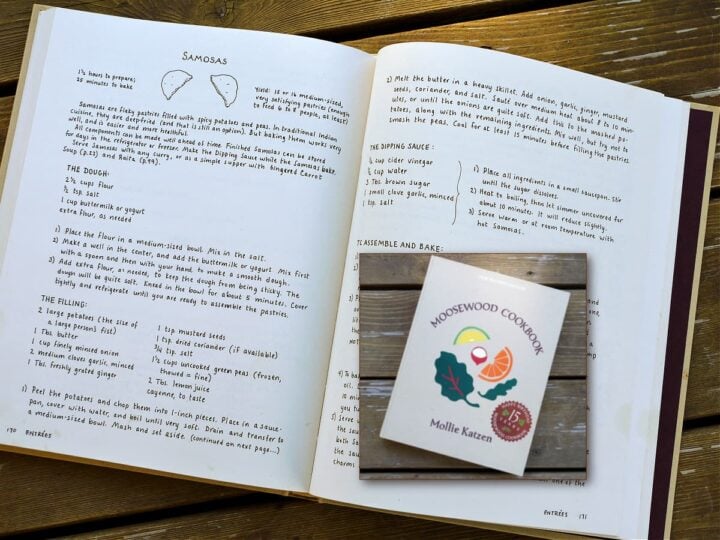 SAMOSAS
1½ hours to prepare;
25 minutes to bake
Yield: 15 or 16 medium-sized,
very satisfying pastries (enough
to feed 6 to 8 people, at least)
Samosas are flaky pastries filled with spicy potatoes and peas. In traditional Indian
cuisine, they are deep-fried (and that is still an option). But baking them works very
well, and is easier and more healthful.
All components can be made well ahead of time. Finished Samosas can be stored
for days in the refrigerator or freezer. Make the Dipping Sauce while the Samosas bake.
Serve Samosas with any curry, or as a simple supper with Gingered Carrot
Soup (p.23) and Raita (p.99).
THE DOUGH:
2½ cups flour
½ tsp. salt
1 cup buttermilk or yogurt
extra flour, as needed
1) Place the flour in a medium-sized bowl. Mix in the salt.
2) Make a well in the center, and add the buttermilk or yogurt. Mix first
with a spoon and then with your hand, to make a smooth dough.
3) Add extra flour, as needed, to keep the dough from being sticky. The
dough will be quite soft. Knead in the bowl for about 5 minutes. Cover
tightly and refrigerate until you are ready to assemble the pastries.
THE FILLING:
2 large potatoes (the size of
a large person's fist)
1 Tbs. butter
1 cup finely minced onion
2 medium cloves garlic, minced
1 Tbs. freshly grated ginger
1 tsp. mustard seeds
1 tsp. dried coriander (if available)
¾ tsp. salt
1½ cups uncooked green peas (frozen,
thawed = fine)
2 Tbs. lemon juice
cayenne, to taste
1) Peel the potatoes and chop them into 1-inch pieces. Place in a sauce-
pan, cover with water, and boil until very soft. Drain and transfer to
a medium-sized bowl. Mash and set aside. (continued on next page...)
170 ENTRÉES
2) Melt the butter in a heavy skillet. Add onion, garlic, ginger, mustard
seeds, coriander, and salt. Sauté over medium heat about 8 to 10 min-
utes, or until the onions are quite soft. Add this to the mashed po-
tatoes, along with the remaining ingredients. Mix well, but try not to
smash the peas. Cool for at least 15 minutes before filling the pastries.
THE DIPPING SAUCE:
½ cup cider vinegar
½ cup water
3 Tbs. brown sugar
1 small clove garlic, minced
1 tsp. salt
1) Place all ingredients in a small saucepan. Stir
until the sugar dissolves.
2) Heat to boiling, then let simmer uncovered for
about 10 minutes. It will reduce slightly.
3) Serve warm or at room temperature with
hot Samosas.
TO ASSEMBLE AND BAKE:
MOOSEWOOD COOKBOOK
15
Mollie Katzen
of the
ENTRÉES 171